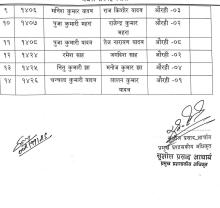 ९ १४०६ मनिता कुमार यादव राज किशोर यादव औरही -०३
१० १४०७ पुजा कुमारी महरा राजेन्द्र कुमार महरा औरही -०७
११ १४०८ पुजा कुमारी यादव तेज नारायण यादव औरही -०८
१२ १४२४ रमेश साह जगदिश साह औरही -०३
१३ १४२५ नितु कुमारी झा मनोज कुमार झा औरही -०४
१४ १४२६ चन्चला कुमारी यादव लालन कुमार यादव औरही -०९
सुशील प्रसाद आचार्य
प्रमुख प्रशासकीय अधिकृत
सुशील प्रसाद आचार्य
प्रमुख प्रशासकीय अधिकृत